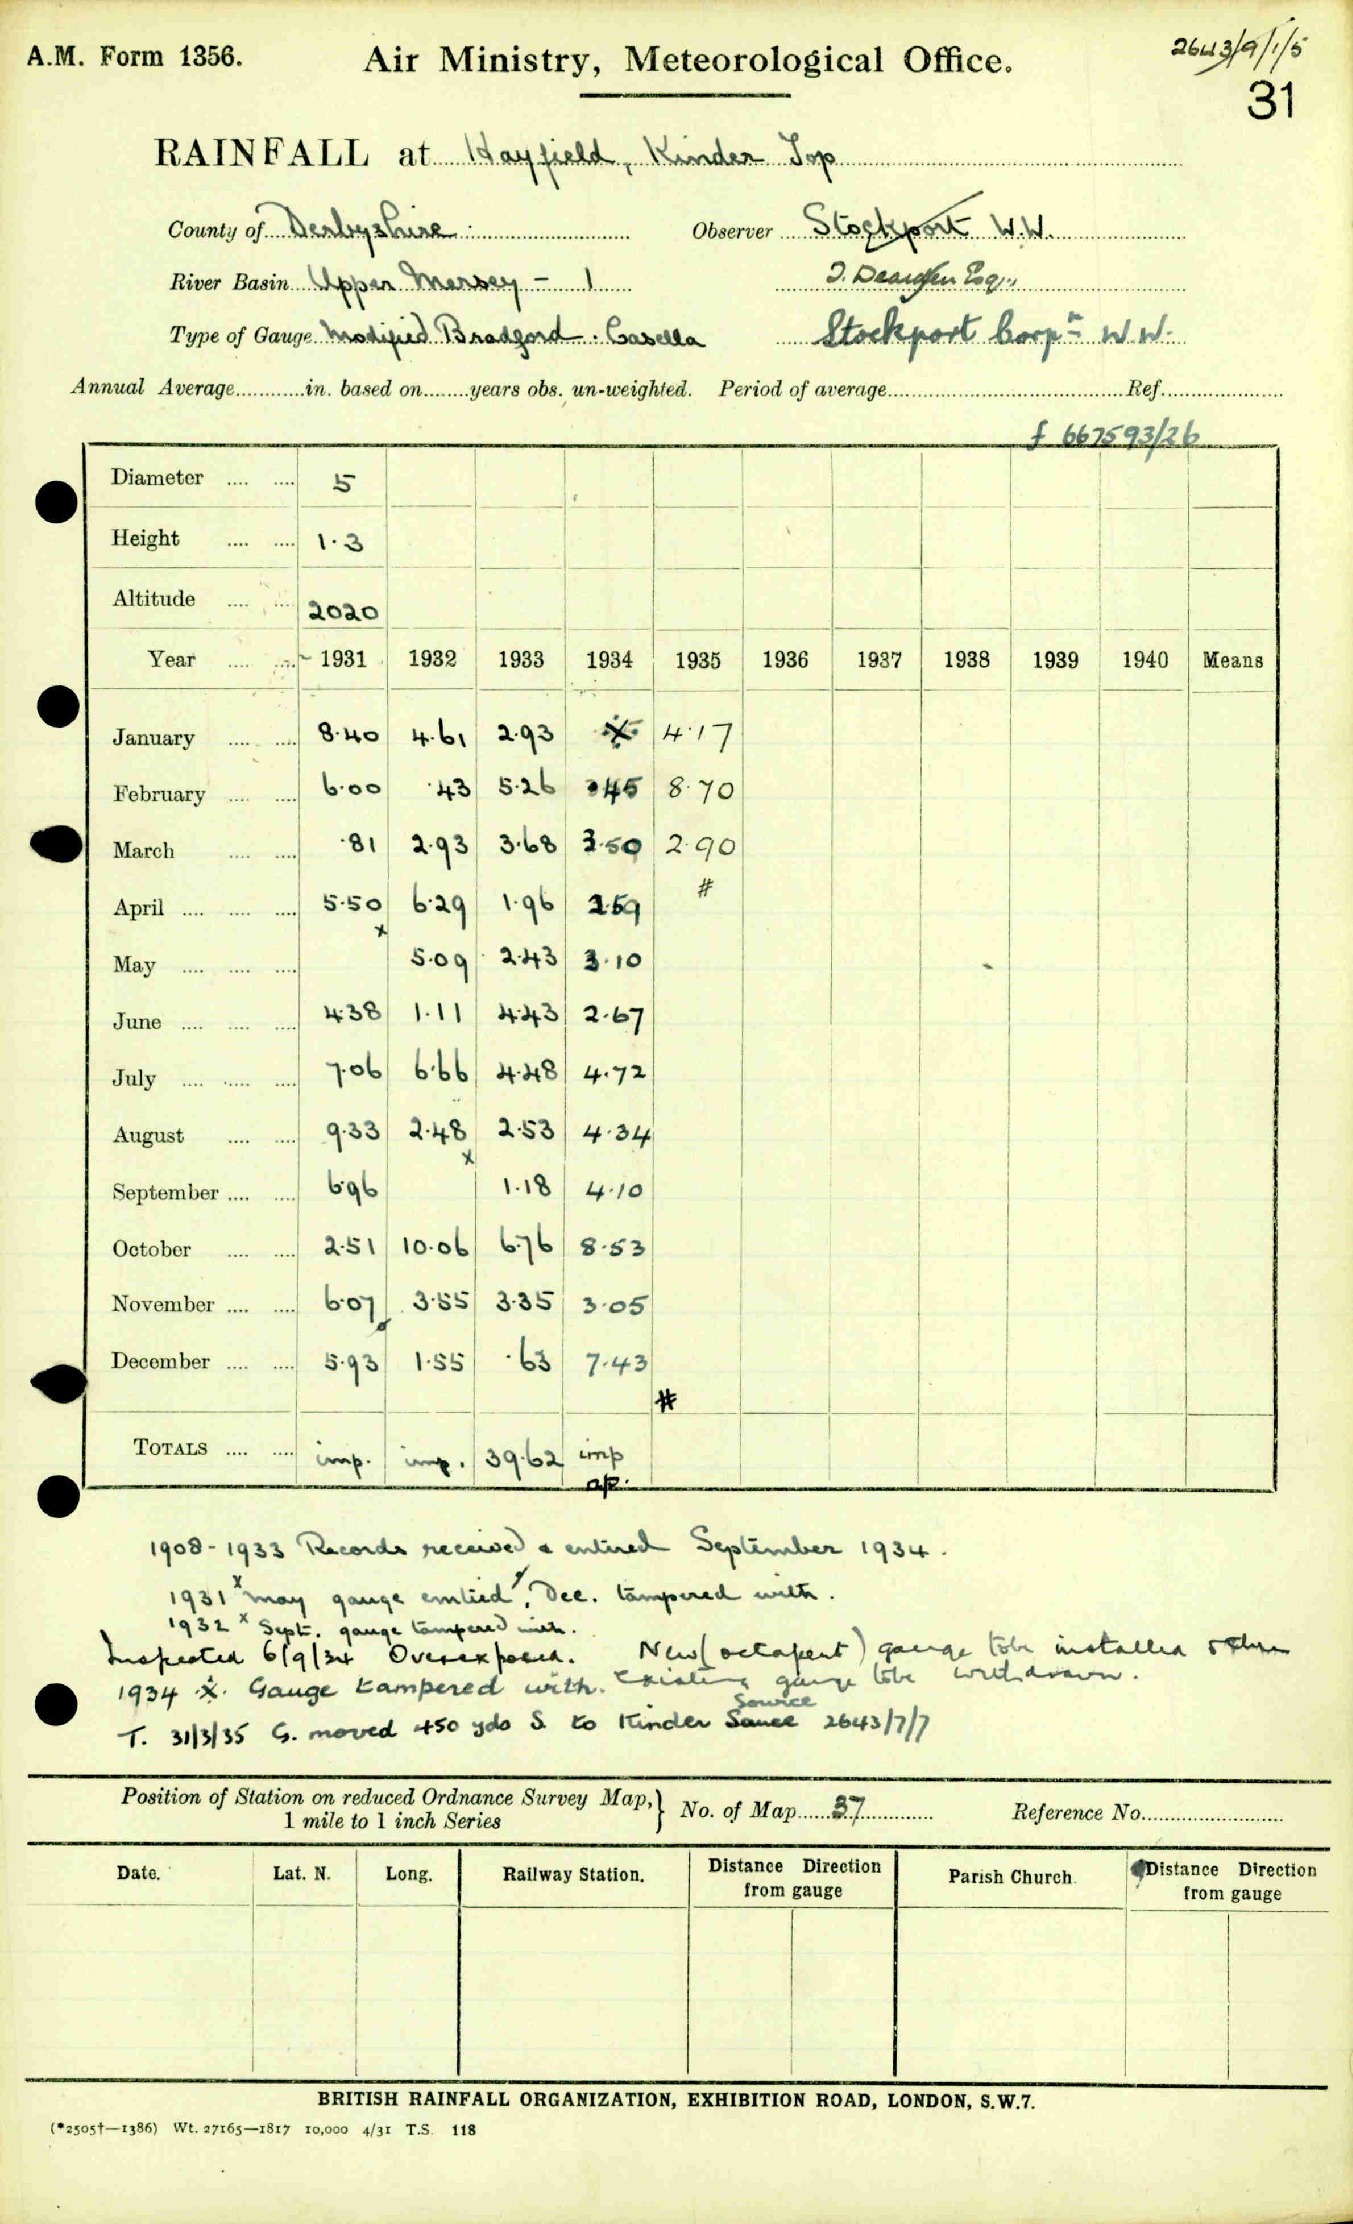 A.M. Form 1356. Air Ministry, Meteorological Office. 2643/9/1/5
31
RAINFALL at Hayfield, Kinder Top
County of Derbyshire Observer Stockport W.W.
River Basin Upper Mersey - 1 Esq.,
Type of Gauge Modified Bradford. Casella Stockport Corpn W.W.
Annual Average in. based on years obs. un-weighted. Period of average Ref.
f 667593/26
Diameter 5
Height 1.3
Altitude 2020
Year 1931 1932 1933 1934 1935 1936 1937 1938 1939 1940 Means
January 8.40 4.61 2.93 x 4.17
February 6.00 .43 5.26 .45 8.70
March .81 2.93 3.68 3.50 2.90
April 5.50 6.29 1.96 2.59 #
x
May 5.09 2.43 3.10
June 4.38 1.11 4.43 2.67
July 7.06 6.66 4.48 4.72
August 9.33 2.48 2.53 4.34
x
September 6.96 1.18 4.10
October 2.51 10.06 6.76 8.53
November 6.07 3.85 3.35 3.05
December 5.93 1.55 .63 7.43
#
TOTALS imp. imp. 39.62 imp
ap.
1908-1933 Records received & entered September 1934.
1931 x May gauge emtied, Dec. tampered with.
1932 x Sept. gauge tampered with.
Inspected 6/9/34 Overexposed. New (octapent) gauge to be installed
1934 x. Gauge tampered with. Existing gauge to be withdrawn.
Source
T. 31/3/35 G. moved 450 yds S to Kinder Sauce 2643/7/7
Position of Station on reduced Ordnance Survey Map, } No. of Map 37 Reference No.
1 mile to 1 inch Series
Date. Lat. N. Long. Railway Station. Distance Direction from gauge Parish Church. Distance Direction from gauge
BRITISH RAINFALL ORGANIZATION, EXHIBITION ROAD, LONDON, S.W.7.
(*2505†—1386) Wt. 27165—1817 10,000 4/31 T.S. 118